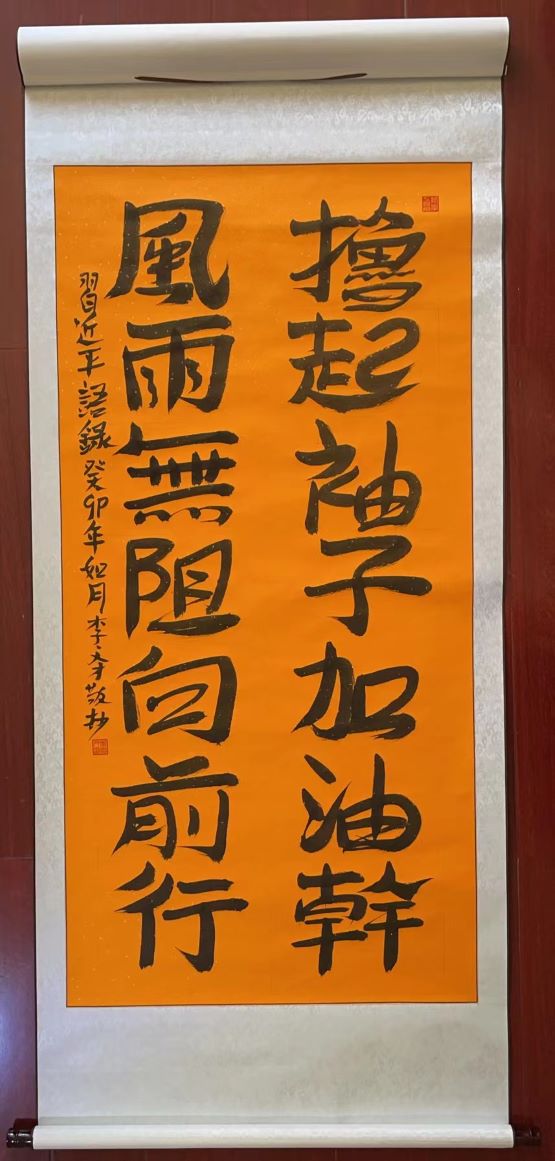 撸起袖子加油幹
風雨無阻向前行
習近平語錄癸卯年如月李夲敬抄